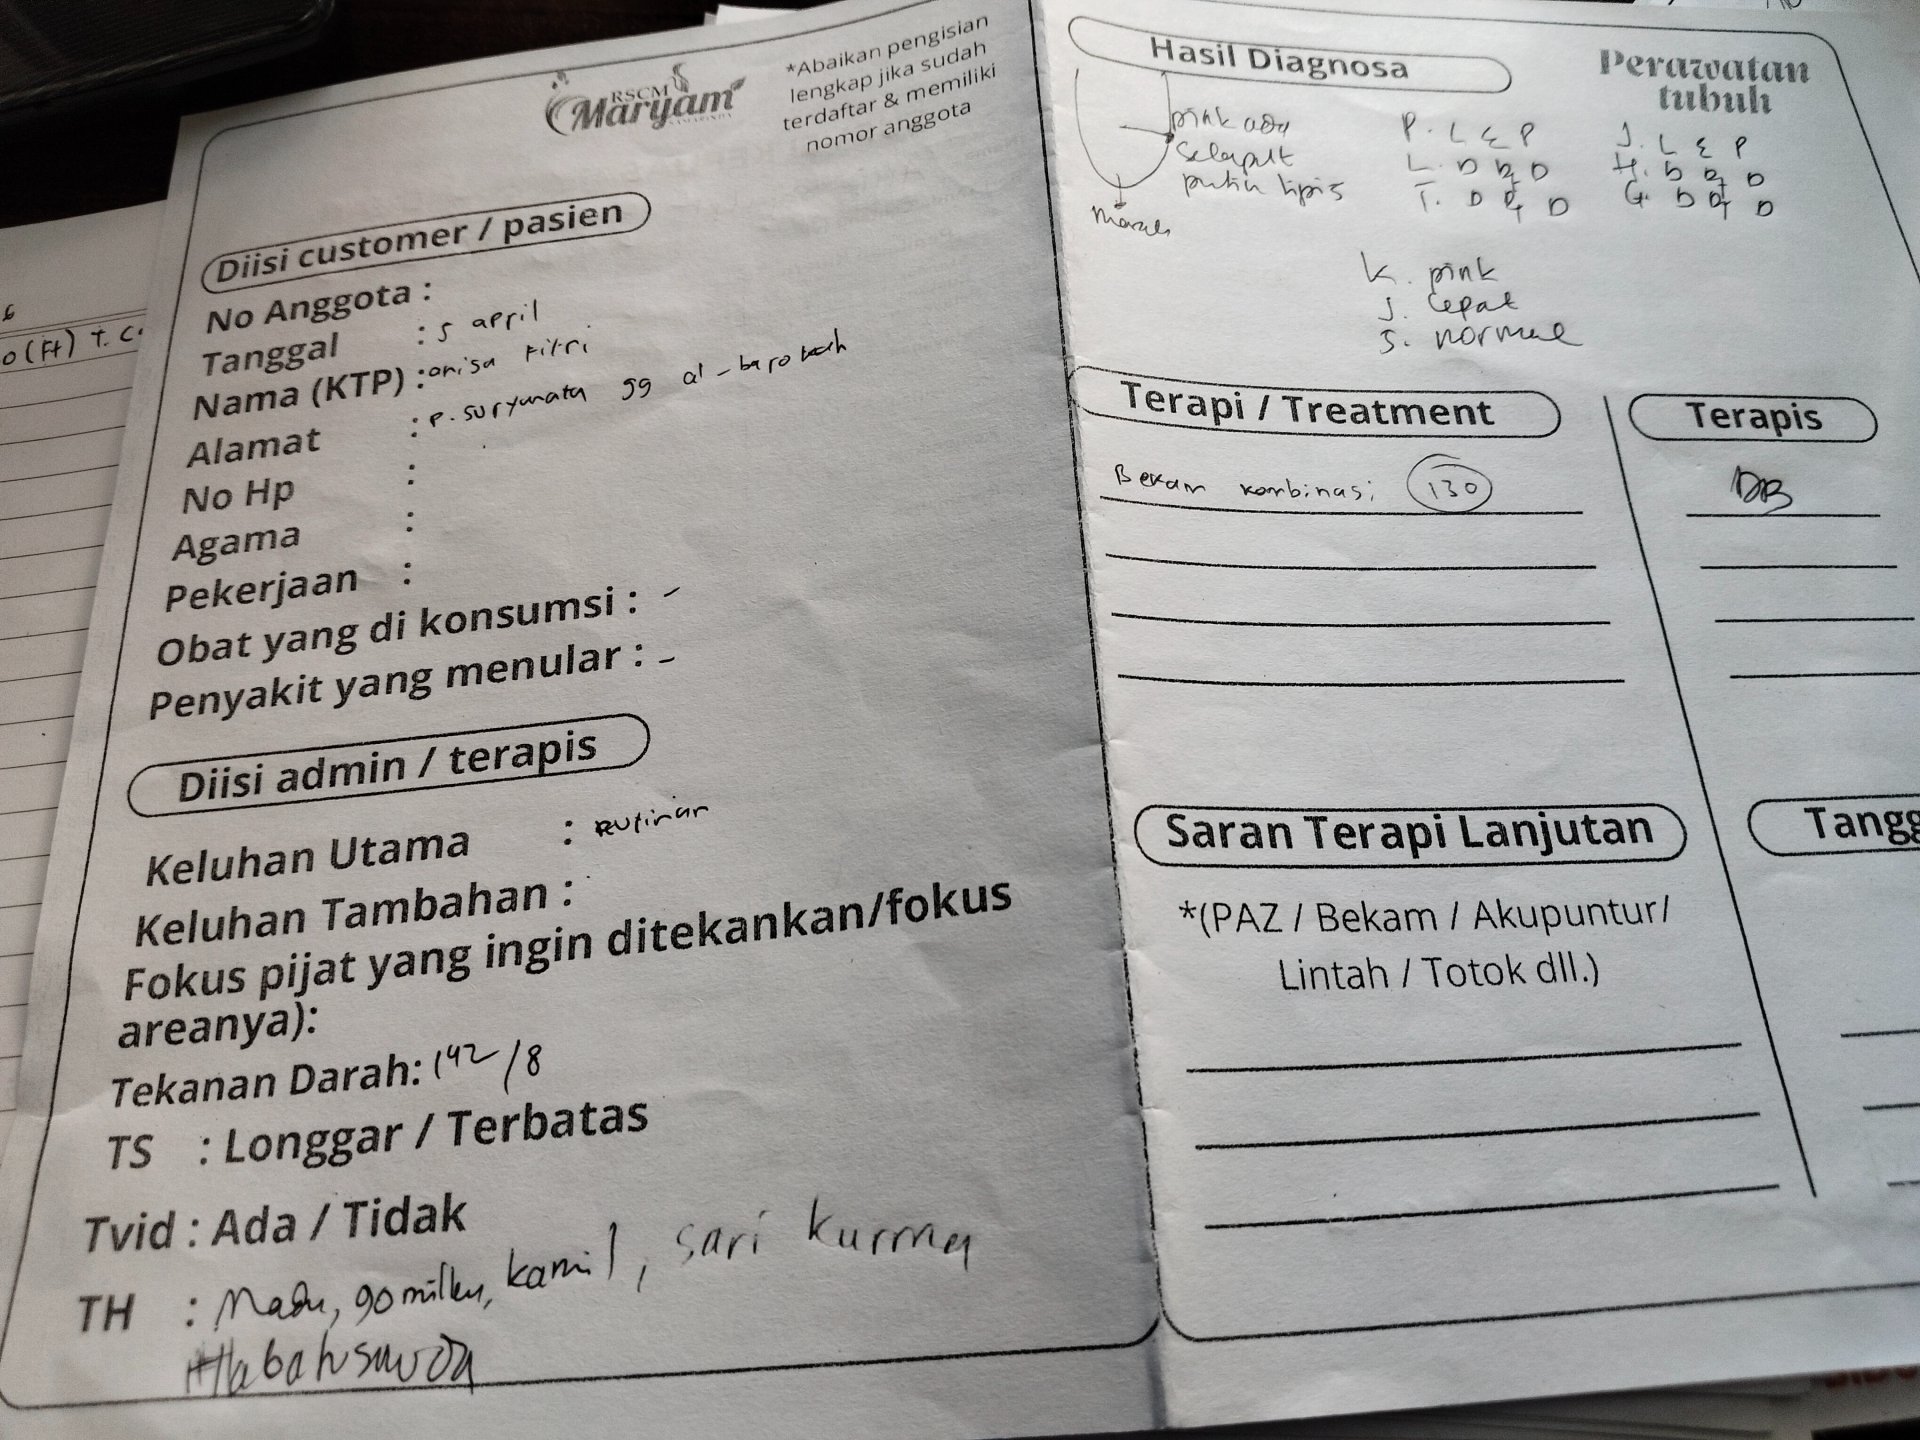 RSCM
Maryam
*Abaikan pengisian
lengkap jika sudah
terdaftar & memiliki
nomor anggota
Diisi customer / pasien
No Anggota :
Tanggal : 5 april
Nama (KTP) : anisa Fitri
Alamat : P. suryanata gg al-barokah
No Hp :
Agama :
Pekerjaan :
Obat yang di konsumsi : -
Penyakit yang menular : -
Diisi admin / terapis
Keluhan Utama : Rutinan
Keluhan Tambahan :
Fokus pijat yang ingin ditekankan/fokus
areanya):
Tekanan Darah: 142/8
TS : Longgar / Terbatas
Tvid : Ada / Tidak
TH : Madu, gomilku, kamil, sari kurma
Habatusauda
Hasil Diagnosa
Perawatan
tubuh
pink ada
Selaput
putih tipis
Merah
P. L Σ P
L. D D
T. D D
J. L Σ P
H. D D
G. D D
K. pink
J. cepat
S. normal
Terapi / Treatment
Terapis
Bekam kombinasi 130
DB
Saran Terapi Lanjutan
Tangg
*(PAZ / Bekam / Akupuntur/
Lintah / Totok dll.)
o (Ft) T. C